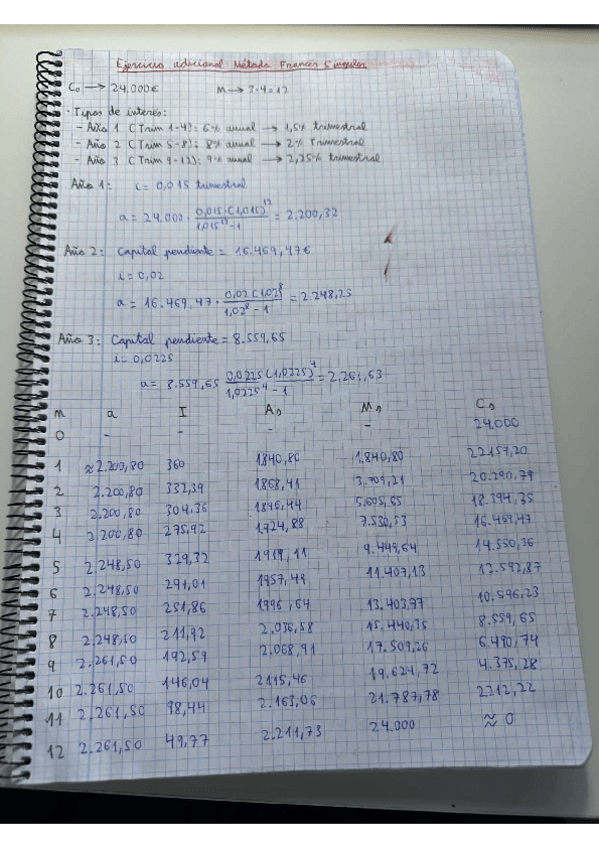 Ejercicio adicional Método Francés Singular
C₀ → 24.000€ M → 3·4=12
· Tipos de interés:
- Año 1 (Trim 1-4): 6% anual → 1,5% trimestral
- Año 2 (Trim 5-8): 8% anual → 2% trimestral
- Año 3 (Trim 9-12): 9% anual → 2,25% trimestral
Año 1: i = 0,015 trimestral
a = 24.000 · 0,015·(1,015)¹² / 1,015¹² - 1 = 2.200,32
Año 2: Capital pendiente = 16.469,47€
i = 0,02
a = 16.469,47 · 0,02(1,02)⁸ / 1,02⁸ - 1 = 2.248,25
Año 3: Capital pendiente = 8.559,65
i = 0,0225
a = 8.559,65 0,0225(1,0225)⁴ / 1,0225⁴ - 1 = 2.261,63
m a I A M C
0 - - - - 24.000
1 ≈2.200,80 360 1840,80 1.840,80 22159,20
2 2.200,80 332,39 1868,41 3.709,21 20.290,79
3 2.200,80 304,36 1896,44 5.605,65 18.394,35
4 2.200,80 275,92 1.924,88 7.530,53 16.469,47
5 2.248,50 329,32 1919,11 9.449,64 14.550,36
6 2.248,50 291,01 1957,49 11.407,13 12.592,87
7 2.248,50 251,86 1996,64 13.403,77 10.596,23
8 2.248,50 211,92 2.036,58 15.440,35 8.559,65
9 2.261,50 192,59 2.068,91 17.509,26 6.490,74
10 2.261,50 146,04 2115,46 19.624,72 4.375,28
11 2.261,50 98,44 2.163,06 21.787,78 2212,22
12 2.261,50 49,77 2.211,73 24.000 ≈ 0